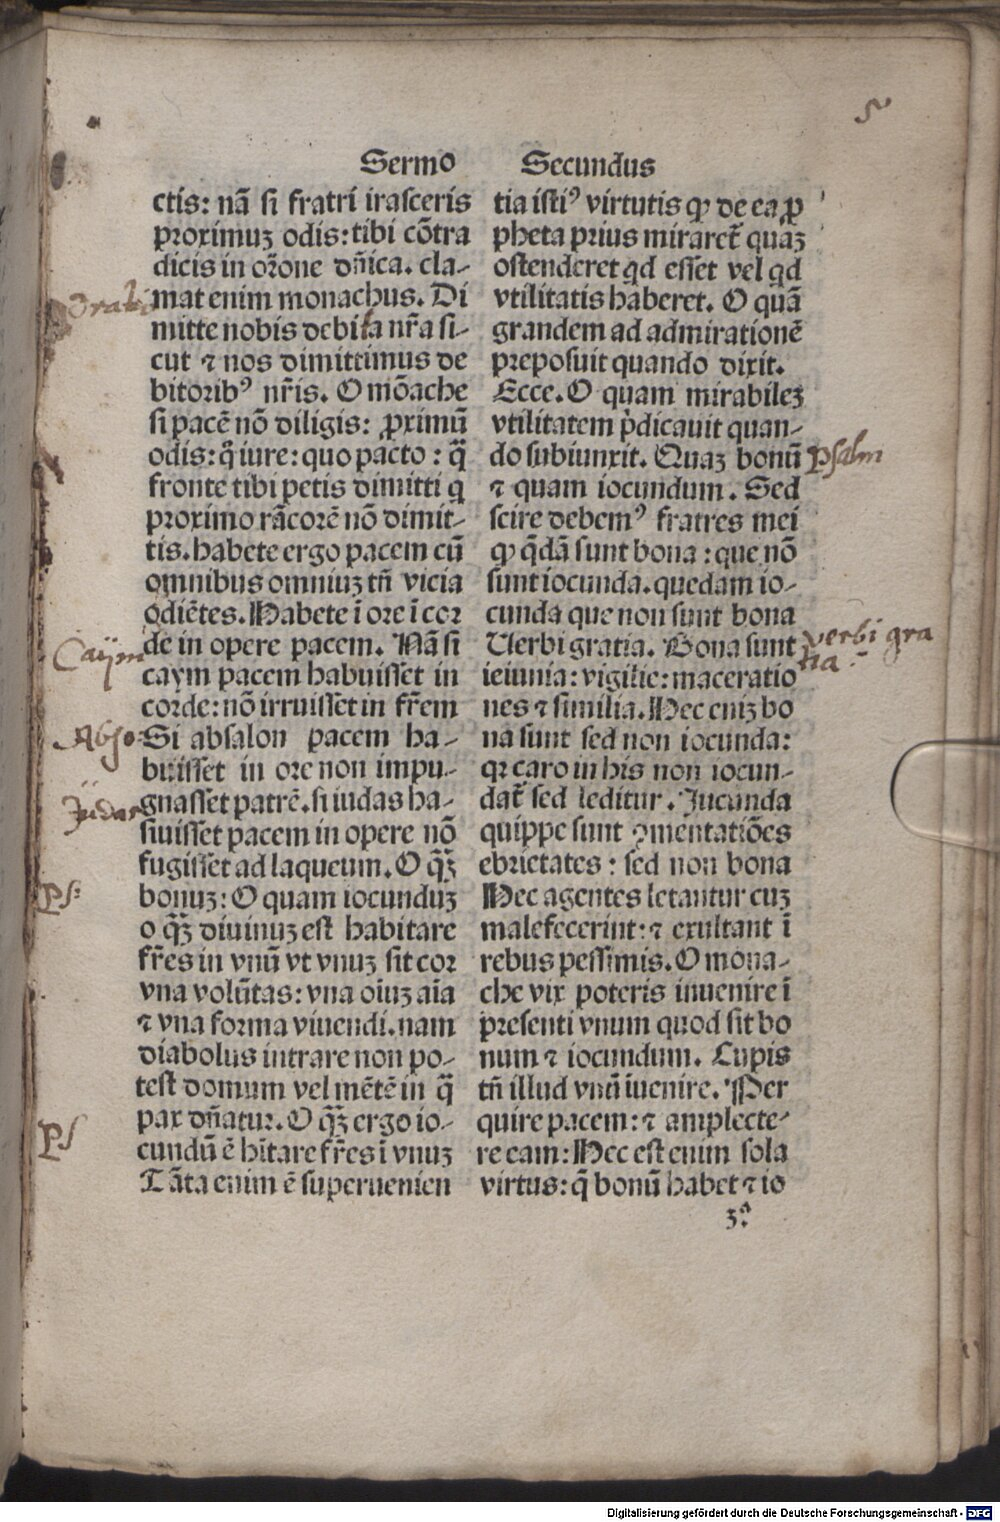 5
Sermo Secundus
ctis: nã si fratri irasceris
proximuz odis: tibi cõtra
dicis in orõne dñica. cla-
mat enim monachus. Di
mitte nobis debita nr̃a si-
cut ⁊ nos dimittimus de
bitoribꝰ nr̃is. O mõache
si pacẽ nõ diligis: ꝓximũ
odis: q̃ iure: quo pacto: q̃
fronte tibi petis dimitti q
proximo rãcorẽ nõ dimit-
tis. habete ergo pacem cũ
omnibus omniuz tñ vicia
odiẽtes. Habete ĩ ore ĩ cor
de in opere pacem. Nã si
caym pacem habuisset in
corde: nõ irruisset in fr̃em
Si absalon pacem ha-
buisset in ore non impu-
gnasset patrẽ. si iudas ha-
buisset pacem in opere nõ
fugisset ad laqueum. O q̃ȝ
bonuz: O quam iocunduz
o q̃ȝ diuinuz est habitare
fr̃es in vnũ vt vnuz sit cor
vna volũtas: vna oĩuz aĩa
⁊ vna forma viuendi. nam
diabolus intrare non po-
test domum vel mẽtẽ in q̃
pax dñatur. O q̃ȝ ergo io-
cundũ ẽ hĩtare fr̃es ĩ vnuz
Tãta enim ẽ superuenien
tia istiꝰ virtutis ꝙ de ea ꝓ
pheta prius miraret̃ quaz
ostenderet qd esset vel qd
vtilitatis haberet. O quã
grandem ad admirationẽ
preposuit quando dixit.
Ecce. O quam mirabilez
vtilitatem p̃dicauit quan-
do subiunxit. Quaz bonũ
⁊ quam iocundum. Sed
scire debemꝰ fratres mei
ꝙ q̃dã sunt bona: que nõ
sunt iocunda. quedam io-
cunda que non sunt bona
Uerbi gratia. Bona sunt
ieiunia: vigilie: maceratio
nes ⁊ similia. Hec eniz bo
na sunt sed non iocunda:
qꝛ caro in his non iocun-
dat̃ sed leditur. Jucunda
quippe sunt ꝯmẽntatiões
ebrietates: sed non bona
Hec agentes letantur cuz
malefecerint: ⁊ exultant ĩ
rebus pessimis. O mona-
che vix poteris inuenire ĩ
presenti vnum quod sit bo
num ⁊ iocundum. Cupis
tñ illud vnũ ĩuenire. Per
quire pacem: ⁊ amplecte-
re eam: Hec est enim sola
virtus: q̃ bonũ habet ⁊ io
3.a
Orati
Caym
Abso
Judas
Ps:
Ps
Psalm
verbi gra
tia
Digitalisierung gefördert durch die Deutsche Forschungsgemeinschaft - DFG